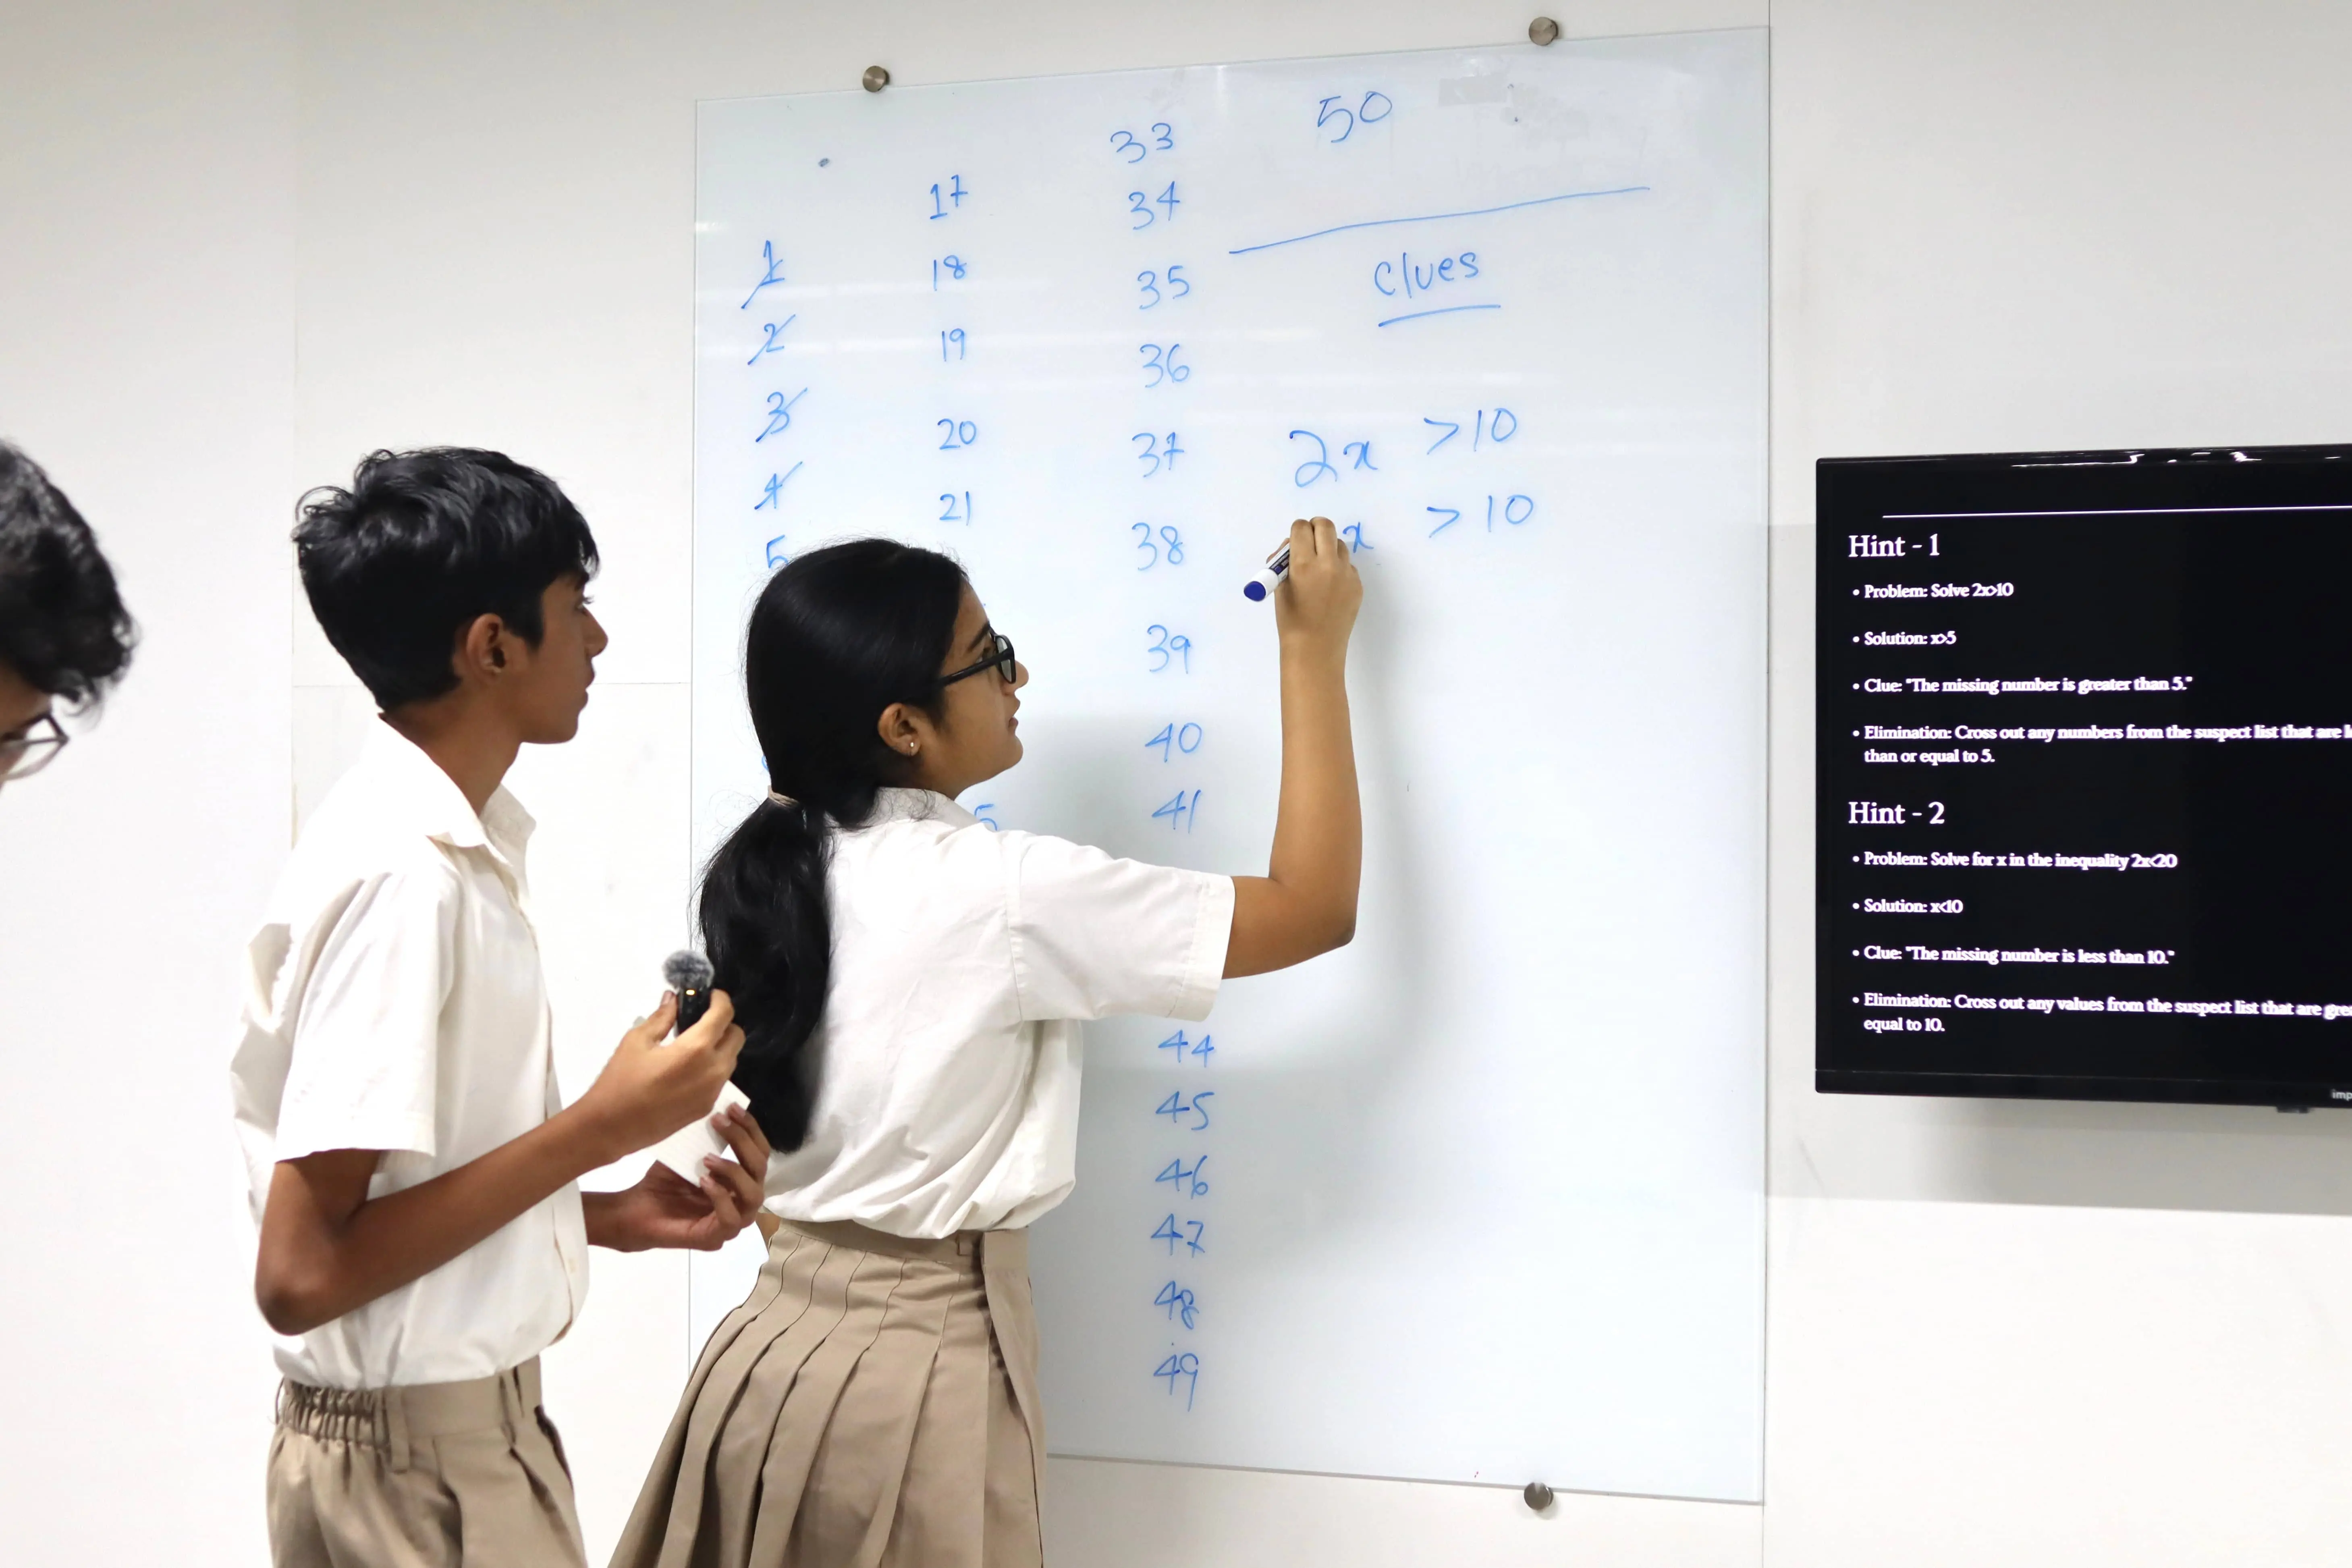 1
2
3
4
5
17
18
19
20
21
5
33
34
35
36
37
38
39
40
41
44
45
46
47
48
49
50
Clues
2x >10
x >10
Hint - 1
• Problem: Solve 2x>10
• Solution: x>5
• Clue: "The missing number is greater than 5."
• Elimination: Cross out any numbers from the suspect list that are
than or equal to 5.
Hint - 2
• Problem: Solve for x in the inequality 2x<20
• Solution: x<10
• Clue: "The missing number is less than 10."
• Elimination: Cross out any values from the suspect list that are
equal to 10.